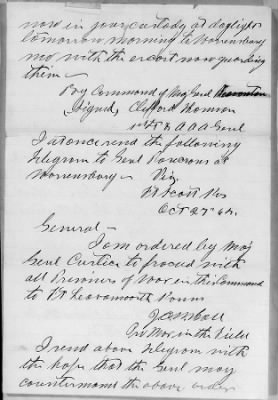 now in your custody at daylight
tomorrow morning to Warrensburg
Mo with the escort now guarding
them —
By Command of Maj Genl
Signed, Clifford Thomson
1st Lt & A A A Genl
I at once send the following
telegram to Genl Rosecrans at
Warrensburg —
Viz
Ft Scott Kas
Oct 27 64.
General —
I am ordered by Maj
Genl Curtis to proceed with
all Prisoners of War in this Command
to Ft Leavenworth
Pro Mar in the Field
I send above telegram with
the hope that the Genl may
countermand the above order